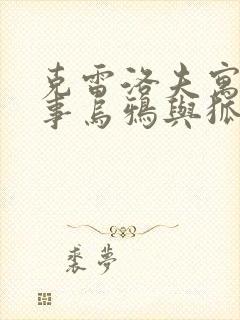 克雷洛夫寓
事烏鴉與狐
裘夢